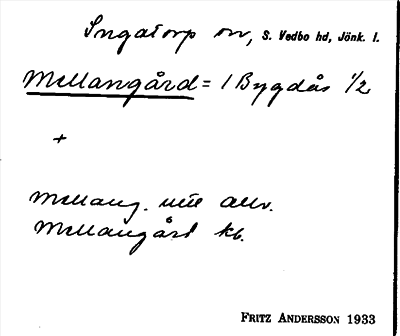 Ingatorp sn, S. Vedbo hd, Jönk. l.
Mellangård = 1 Bygdås 1/2
+
Mellang. uttt allv.
Mellangård kb.
FRITZ ANDERSSON 1933